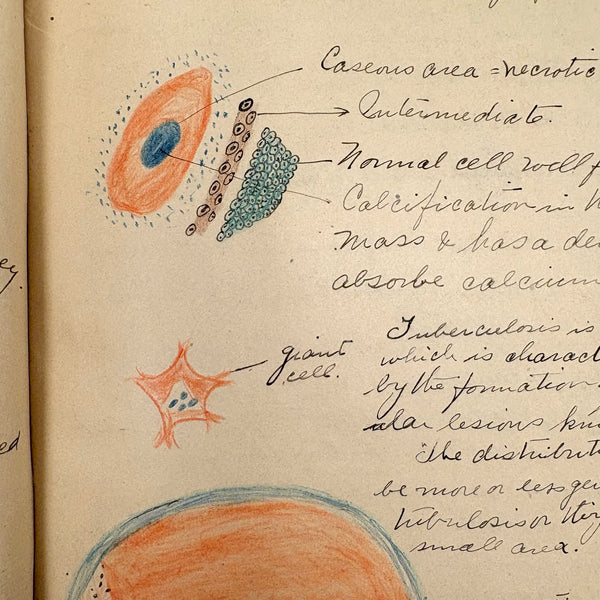 Caseous area = necrotic
Intermediate.
Normal cell well f
Calcification in
mass & has a de
absorbe calcium
giant
cell.
Tuberculosis is
which is charact
by the formation
ular lesions kn
The distribut
be more or less ge
tubulosis or
small area.
ey.
ed